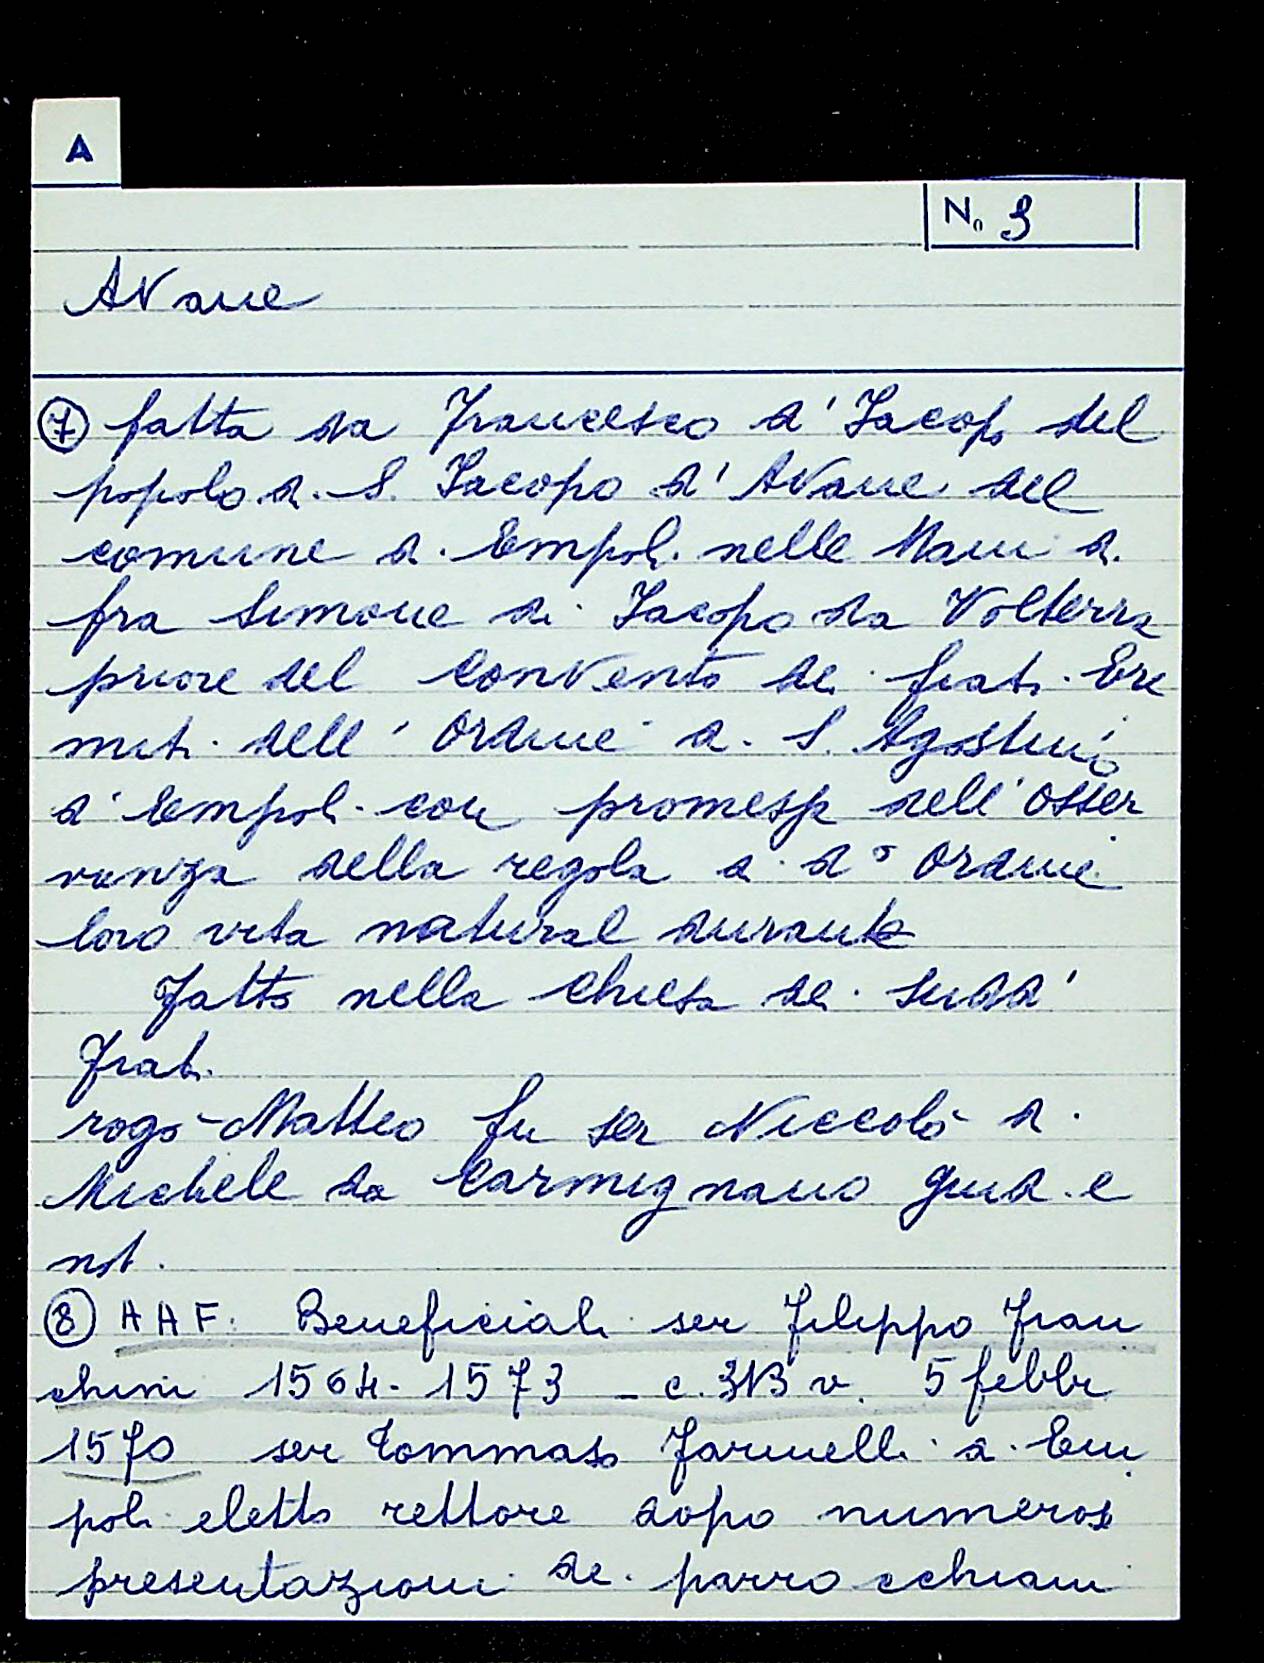 A
N. 9
Avane
⑦ fatta da Francesco d' Iacopo del
popolo di S. Iacopo d' Avane del
comune di Empoli nelle Mani di
fra Simone di Iacopo da Volterra
priore del convento dei frati Ere
miti dell' Ordine di S. Agostino
d' Empoli con promessa dell' osser
vanza della regola di do Ordine
loro vita natural durante
Fatto nella chiesa dei sudd'
frati
rogò Matteo fu ser Niccolò di
Michele da Carmignano giud. e
not.
⑧ AAF. Beneficiali ser Filippo Fran
chini 1564-1573 - c. 313 v. 5 febbr
1570 ser Tommaso Farinelli di Em
poli eletto rettore dopo numerose
presentazioni dei parrocchiani